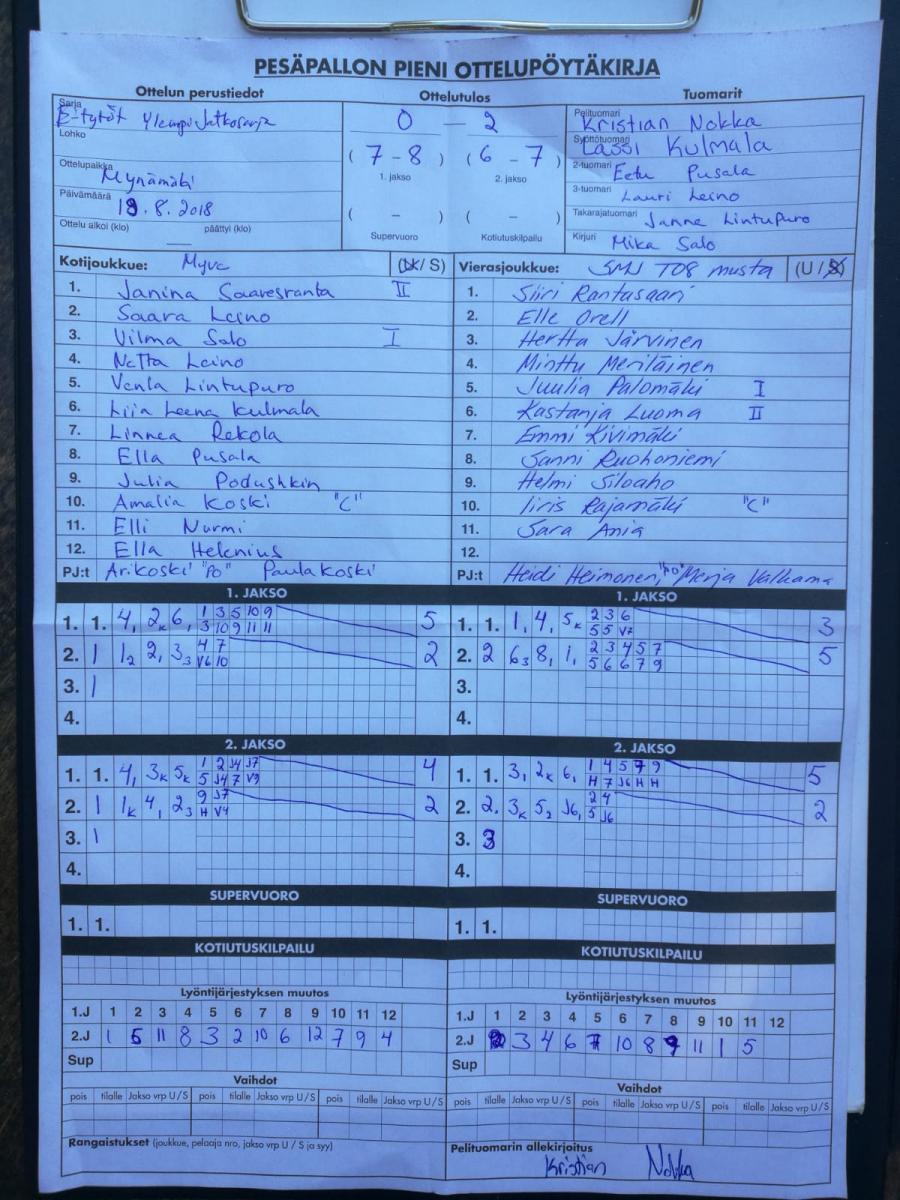 PESÄPALLON PIENI OTTELUPÖYTÄKIRJA
Ottelun perustiedot
Ottelutulos
Tuomarit
Sarja E-tytöt Ylempi Jatkosarja
Lohko
Ottelupaikka Mynämäki
Päivämäärä 19.8.2018
Ottelu alkoi (klo) — päättyi (klo)
0 – 2
( 7 – 8 ) ( 6 – 7 )
1. jakso 2. jakso
( – ) ( – )
Supervuoro Kotiutuskilpailu
Pelituomari Kristian Nokka
Syöttötuomari Lassi Kulmala
2-tuomari Eetu Pusala
3-tuomari Lauri Leino
Takarajatuomari Janne Lintupuro
Kirjuri Mika Salo
Kotijoukkue: Myve (U / S)
1. Janina Saaresranta II
2. Saara Leino
3. Vilma Salo I
4. Netta Leino
5. Venla Lintupuro
6. Liia Leena Kulmala
7. Linnea Rekola
8. Ella Pusala
9. Julia Podushkin
10. Amalia Koski "C"
11. Elli Nurmi
12. Ella Helenius
PJ:t Ari Koski "PO" Paula Koski
Vierasjoukkue: SMJ T08 musta (U / S)
1. Siiri Rantasaari
2. Elle Orell
3. Hertta Järvinen
4. Minttu Meriläinen
5. Juulia Palomäki I
6. Kastanja Luoma II
7. Emmi Kivimäki
8. Sanni Ruohoniemi
9. Helmi Siloaho
10. Iiris Rajamäki "C"
11. Sara Ania
12.
PJ:t Heidi Heimonen, "PO" Merja Valkama
1. JAKSO
1. 1. 4, 2k 6, 1 3 5 10 9 5
3 10 9 11 11
2. 1 12 2, 33 4 7 2
V6 10
3. 1
4.
1. JAKSO
1. 1. 1, 4, 5k 2 3 6 3
5 5 V7
2. 2 63 8, 1, 2 3 4 5 7 5
5 6 6 7 9
3.
4.
2. JAKSO
1. 1. 4, 3k 5k 1 2 J4 J7 4
5 J4 7 V9
2. 1 1k 4, 23 9 J7 2
H V4
3. 1
4.
2. JAKSO
1. 1. 3, 2k 6, 1 4 5 7 9 5
H 7 J6 H H
2. 2. 3k 52 J6, 2 4 2
5 J6
3. 3
4.
SUPERVUORO
1. 1.
SUPERVUORO
1. 1.
KOTIUTUSKILPAILU
KOTIUTUSKILPAILU
Lyöntijärjestyksen muutos
1.J 1 2 3 4 5 6 7 8 9 10 11 12
2.J 1 5 11 8 3 2 10 6 12 7 9 4
Sup
Lyöntijärjestyksen muutos
1.J 1 2 3 4 5 6 7 8 9 10 11 12
2.J 2 3 4 6 7 10 8 9 11 1 5
Sup
Vaihdot
pois tilalle Jakso vrp U / S pois tilalle Jakso vrp U / S pois tilalle Jakso vrp U / S
Vaihdot
pois tilalle Jakso vrp U / S pois tilalle Jakso vrp U / S pois tilalle Jakso vrp U / S
Rangaistukset (joukkue, pelaaja nro, jakso vrp U / S ja syy)
Pelituomarin allekirjoitus
Kristian Nokka